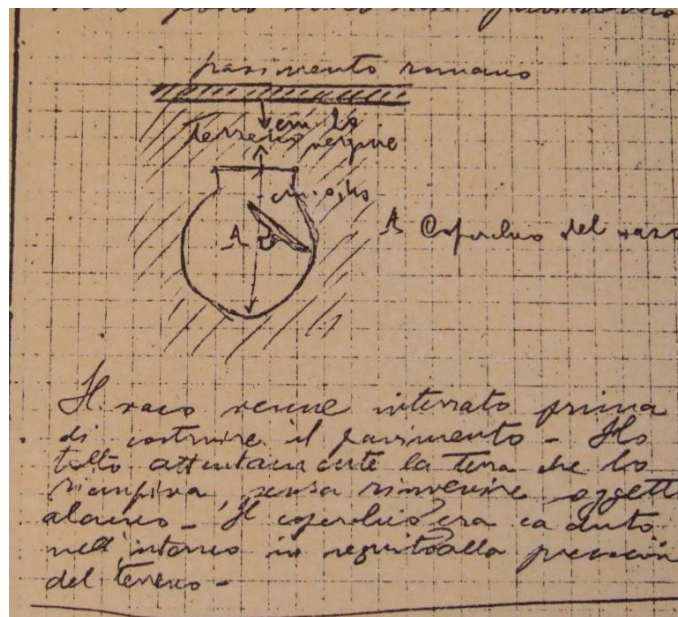 pavimento romano
cm 20
terreno vergine
cm. 0,40
A
A Coperchio del vaso
Il vaso venne interrato prima
di costruire il pavimento - Ho
tolto attentamente la terra che lo
riempiva senza rinvenire oggetti
alcuno - Il coperchio era caduto
nell'interno in seguito alla pressione
del terreno -